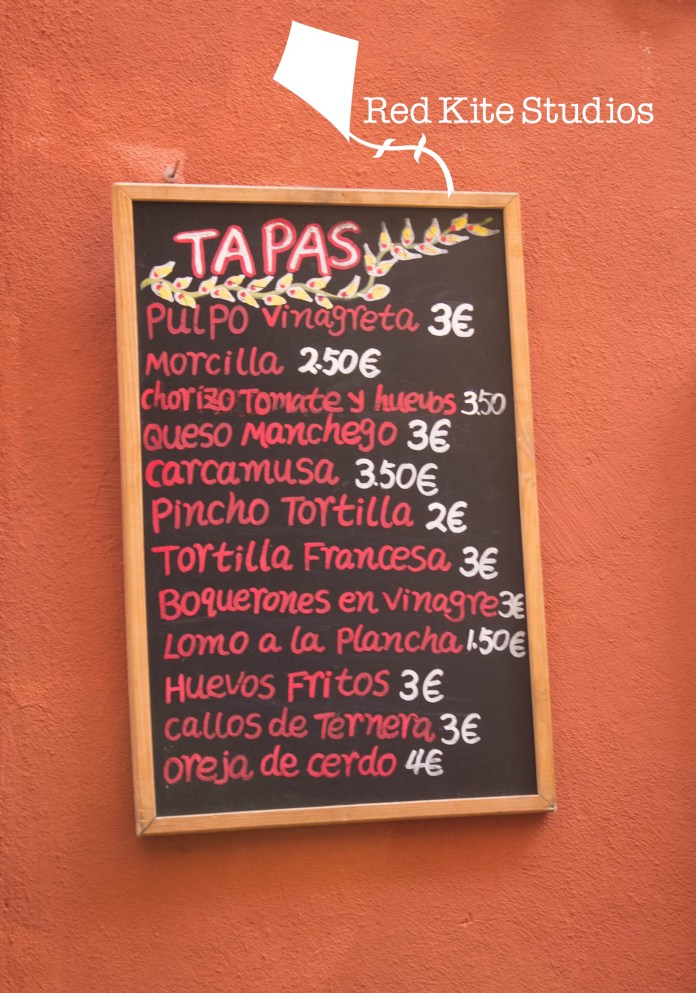 Red Kite Studios
TAPAS
PULPO Vinagreta 3€
Morcilla 2.50€
chorizo Tomate y huevos 3.50
Queso Manchego 3€
carcamusa 3.50€
Pincho Tortilla 2€
Tortilla Francesa 3€
Boquerones en vinagre 3€
Lomo a la Plancha 1.50€
Huevos Fritos 3€
callos de Ternera 3€
oreja de cerdo 4€